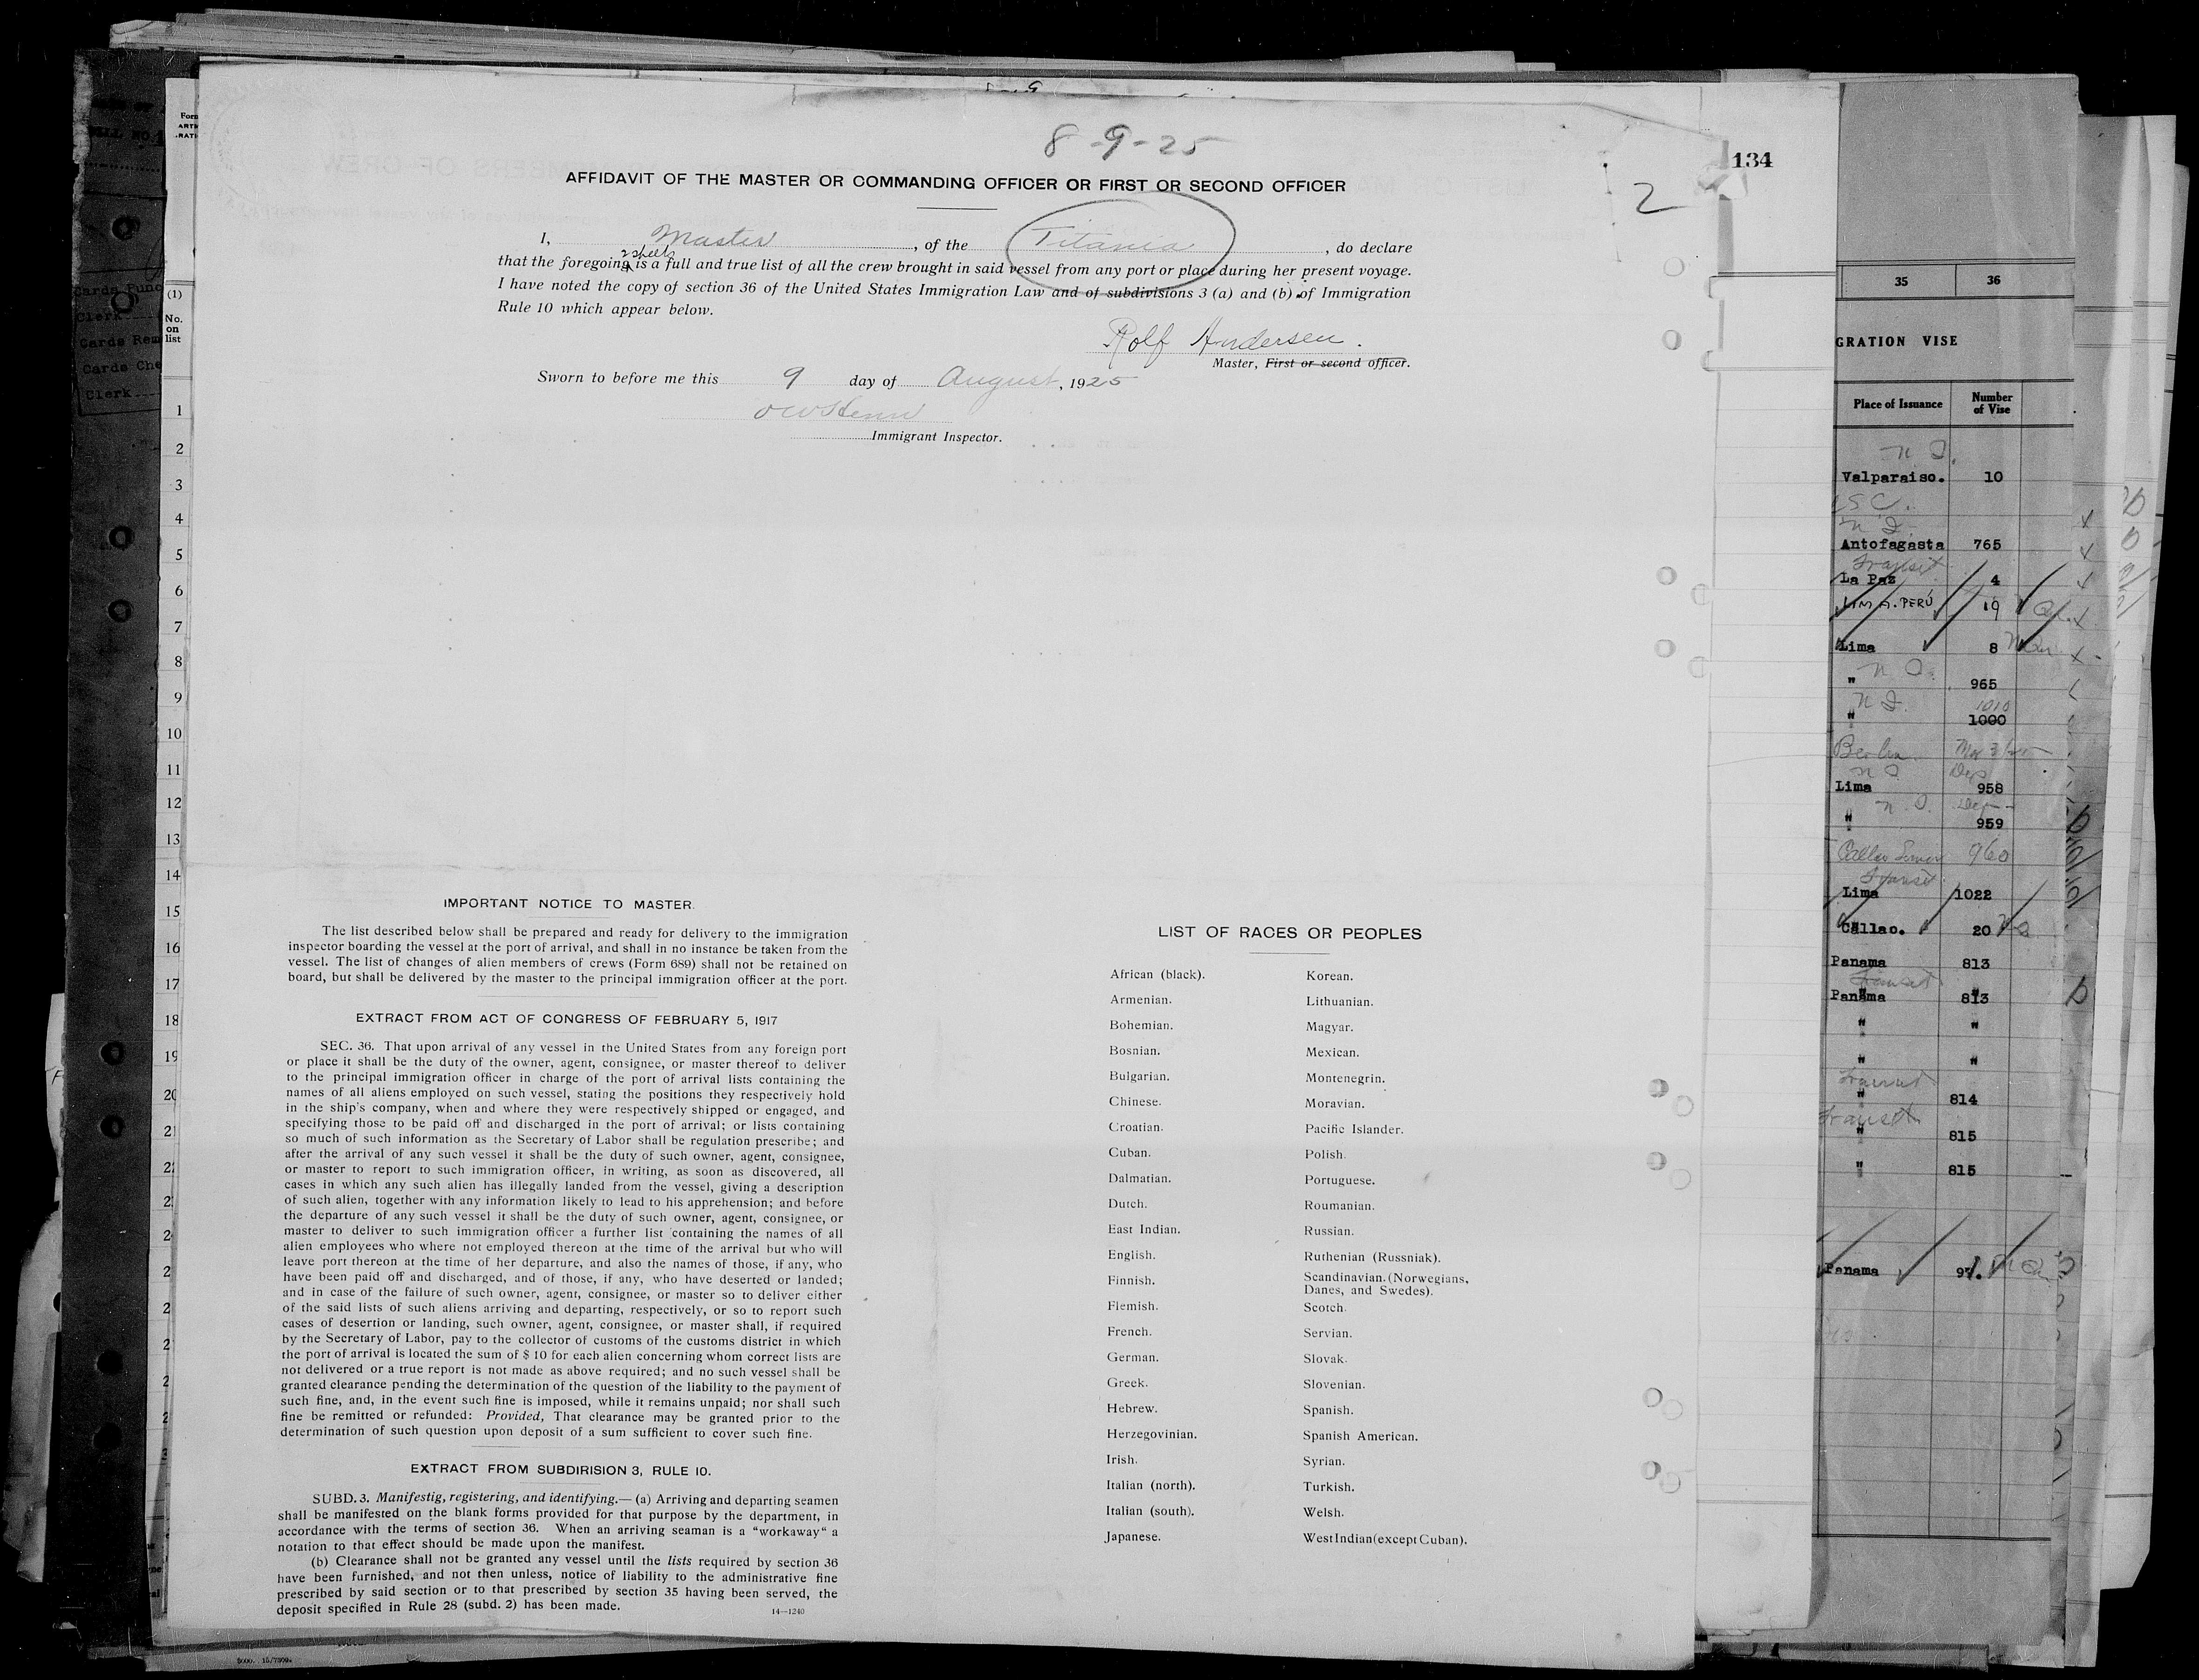 8-9-25
134
2
AFFIDAVIT OF THE MASTER OR COMMANDING OFFICER OR FIRST OR SECOND OFFICER
I, Master, of the Titania, do declare
2 sheets
that the foregoing is a full and true list of all the crew brought in said vessel from any port or place during her present voyage.
I have noted the copy of section 36 of the United States Immigration Law and of subdivisions 3 (a) and (b) of Immigration
Rule 10 which appear below.
Rolf Andersen.
Master, First or second officer.
Sworn to before me this 9 day of August, 1925
Immigrant Inspector.
IMPORTANT NOTICE TO MASTER.
The list described below shall be prepared and ready for delivery to the immigration
inspector boarding the vessel at the port of arrival, and shall in no instance be taken from the
vessel. The list of changes of alien members of crews (Form 689) shall not be retained on
board, but shall be delivered by the master to the principal immigration officer at the port.
EXTRACT FROM ACT OF CONGRESS OF FEBRUARY 5, 1917
SEC. 36. That upon arrival of any vessel in the United States from any foreign port
or place it shall be the duty of the owner, agent, consignee, or master thereof to deliver
to the principal immigration officer in charge of the port of arrival lists containing the
names of all aliens employed on such vessel, stating the positions they respectively hold
in the ship's company, when and where they were respectively shipped or engaged, and
specifying those to be paid off and discharged in the port of arrival; or lists containing
so much of such information as the Secretary of Labor shall be regulation prescribe; and
after the arrival of any such vessel it shall be the duty of such owner, agent, consignee,
or master to report to such immigration officer, in writing, as soon as discovered, all
cases in which any such alien has illegally landed from the vessel, giving a description
of such alien, together with any information likely to lead to his apprehension; and before
the departure of any such vessel it shall be the duty of such owner, agent, consignee, or
master to deliver to such immigration officer a further list containing the names of all
alien employees who where not employed thereon at the time of the arrival but who will
leave port thereon at the time of her departure, and also the names of those, if any, who
have been paid off and discharged, and of those, if any, who have deserted or landed;
and in case of the failure of such owner, agent, consignee, or master so to deliver either
of the said lists of such aliens arriving and departing, respectively, or so to report such
cases of desertion or landing, such owner, agent, consignee, or master shall, if required
by the Secretary of Labor, pay to the collector of customs of the customs district in which
the port of arrival is located the sum of $ 10 for each alien concerning whom correct lists are
not delivered or a true report is not made as above required; and no such vessel shall be
granted clearance pending the determination of the question of the liability to the payment of
such fine, and, in the event such fine is imposed, while it remains unpaid; nor shall such
fine be remitted or refunded: Provided, That clearance may be granted prior to the
determination of such question upon deposit of a sum sufficient to cover such fine.
EXTRACT FROM SUBDIRISION 3, RULE 10.
SUBD. 3. Manifestig, registering, and identifying.— (a) Arriving and departing seamen
shall be manifested on the blank forms provided for that purpose by the department, in
accordance with the terms of section 36. When an arriving seaman is a "workaway" a
notation to that effect should be made upon the manifest.
(b) Clearance shall not be granted any vessel until the lists required by section 36
have been furnished, and not then unless, notice of liability to the administrative fine
prescribed by said section or to that prescribed by section 35 having been served, the
deposit specified in Rule 28 (subd. 2) has been made.
14—1240
LIST OF RACES OR PEOPLES
African (black). Korean.
Armenian. Lithuanian.
Bohemian. Magyar.
Bosnian. Mexican.
Bulgarian. Montenegrin.
Chinese. Moravian.
Croatian. Pacific Islander.
Cuban. Polish.
Dalmatian. Portuguese.
Dutch. Roumanian.
East Indian. Russian.
English. Ruthenian (Russniak).
Finnish. Scandinavian. (Norwegians,
Danes, and Swedes).
Flemish. Scotch.
French. Servian.
German. Slovak.
Greek. Slovenian.
Hebrew. Spanish.
Herzegovinian. Spanish American.
Irish. Syrian.
Italian (north). Turkish.
Italian (south). Welsh.
Japanese. West Indian (except Cuban).
(1)
No.
on
list
1
2
3
4
5
6
7
8
9
10
11
12
13
14
15
16
17
18
19
20
35 36
GRATION VISE
Place of Issuance Number
of Vise
Valparaiso. 10
Antofagasta 765
Transit
La Paz 4
LIMA. PERÚ 19
Lima 8
" 965
1010
" 1000
Berlin
Lima 958
" 959
960
Transit
Lima 1022
Callao. 20
Panama 813
Transit
Panama 813
" "
" "
Transit
" 814
Transit
" 815
" 815
Panama